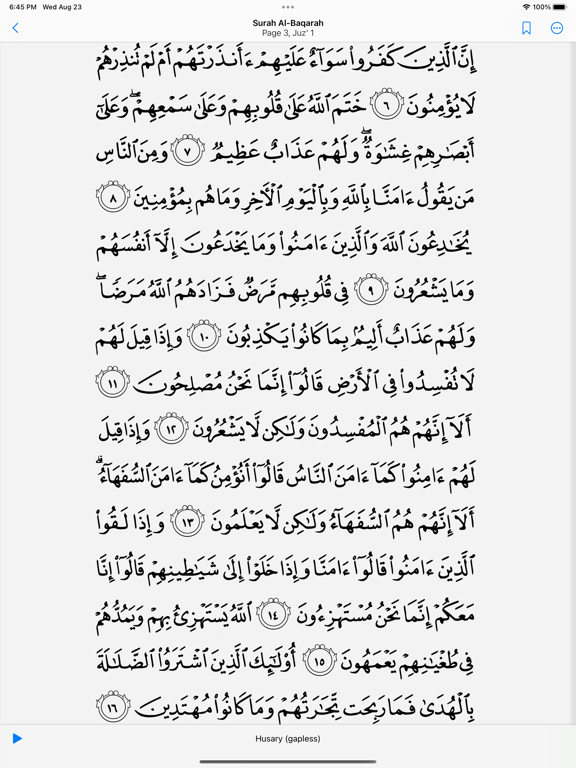 6:45 PM Wed Aug 23
100%
Surah Al-Baqarah
Page 3, Juz' 1
إِنَّ ٱلَّذِينَ كَفَرُوا۟ سَوَآءٌ عَلَيْهِمْ ءَأَنذَرْتَهُمْ أَمْ لَمْ تُنذِرْهُمْ
لَا يُؤْمِنُونَ ٦ خَتَمَ ٱللَّهُ عَلَىٰ قُلُوبِهِمْ وَعَلَىٰ سَمْعِهِمْ ۖ وَعَلَىٰٓ
أَبْصَـٰرِهِمْ غِشَـٰوَةٌ ۖ وَلَهُمْ عَذَابٌ عَظِيمٌ ٧ وَمِنَ ٱلنَّاسِ
مَن يَقُولُ ءَامَنَّا بِٱللَّهِ وَبِٱلْيَوْمِ ٱلْـَٔاخِرِ وَمَا هُم بِمُؤْمِنِينَ ٨
يُخَـٰدِعُونَ ٱللَّهَ وَٱلَّذِينَ ءَامَنُوا۟ وَمَا يَخْدَعُونَ إِلَّآ أَنفُسَهُمْ
وَمَا يَشْعُرُونَ ٩ فِى قُلُوبِهِم مَّرَضٌ فَزَادَهُمُ ٱللَّهُ مَرَضًا ۖ
وَلَهُمْ عَذَابٌ أَلِيمٌۢ بِمَا كَانُوا۟ يَكْذِبُونَ ١٠ وَإِذَا قِيلَ لَهُمْ
لَا تُفْسِدُوا۟ فِى ٱلْأَرْضِ قَالُوٓا۟ إِنَّمَا نَحْنُ مُصْلِحُونَ ١١
أَلَآ إِنَّهُمْ هُمُ ٱلْمُفْسِدُونَ وَلَـٰكِن لَّا يَشْعُرُونَ ١٢ وَإِذَا قِيلَ
لَهُمْ ءَامِنُوا۟ كَمَآ ءَامَنَ ٱلنَّاسُ قَالُوٓا۟ أَنُؤْمِنُ كَمَآ ءَامَنَ ٱلسُّفَهَآءُ ۗ
أَلَآ إِنَّهُمْ هُمُ ٱلسُّفَهَآءُ وَلَـٰكِن لَّا يَعْلَمُونَ ١٣ وَإِذَا لَقُوا۟
ٱلَّذِينَ ءَامَنُوا۟ قَالُوٓا۟ ءَامَنَّا وَإِذَا خَلَوْا۟ إِلَىٰ شَيَـٰطِينِهِمْ قَالُوٓا۟ إِنَّا
مَعَكُمْ إِنَّمَا نَحْنُ مُسْتَهْزِءُونَ ١٤ ٱللَّهُ يَسْتَهْزِئُ بِهِمْ وَيَمُدُّهُمْ
فِى طُغْيَـٰنِهِمْ يَعْمَهُونَ ١٥ أُو۟لَـٰٓئِكَ ٱلَّذِينَ ٱشْتَرَوُا۟ ٱلضَّلَـٰلَةَ
بِٱلْهُدَىٰ فَمَا رَبِحَت تِّجَـٰرَتُهُمْ وَمَا كَانُوا۟ مُهْتَدِينَ ١٦
Husary (gapless)